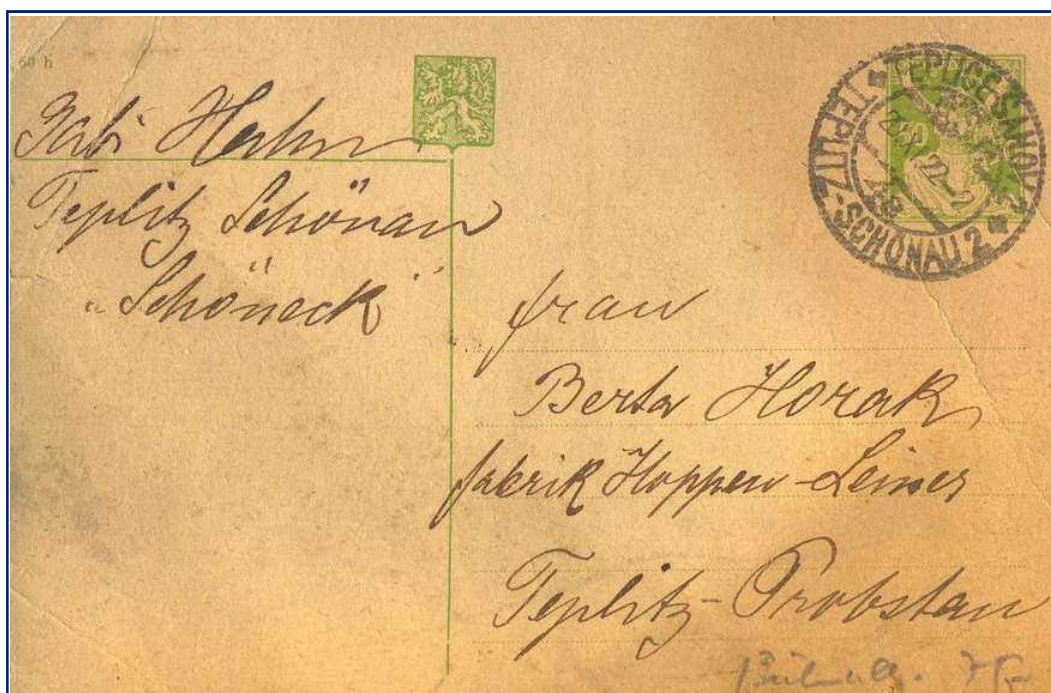 60 h
Gabi Hahn
Teplitz Schönau
„Schöneck"
TEPLICE-ŠANOV 2
TEPLITZ-SCHÖNAU 2
frau
Berta Horak
fabrik Hoppen-Leiner
Teplitz-Probstau